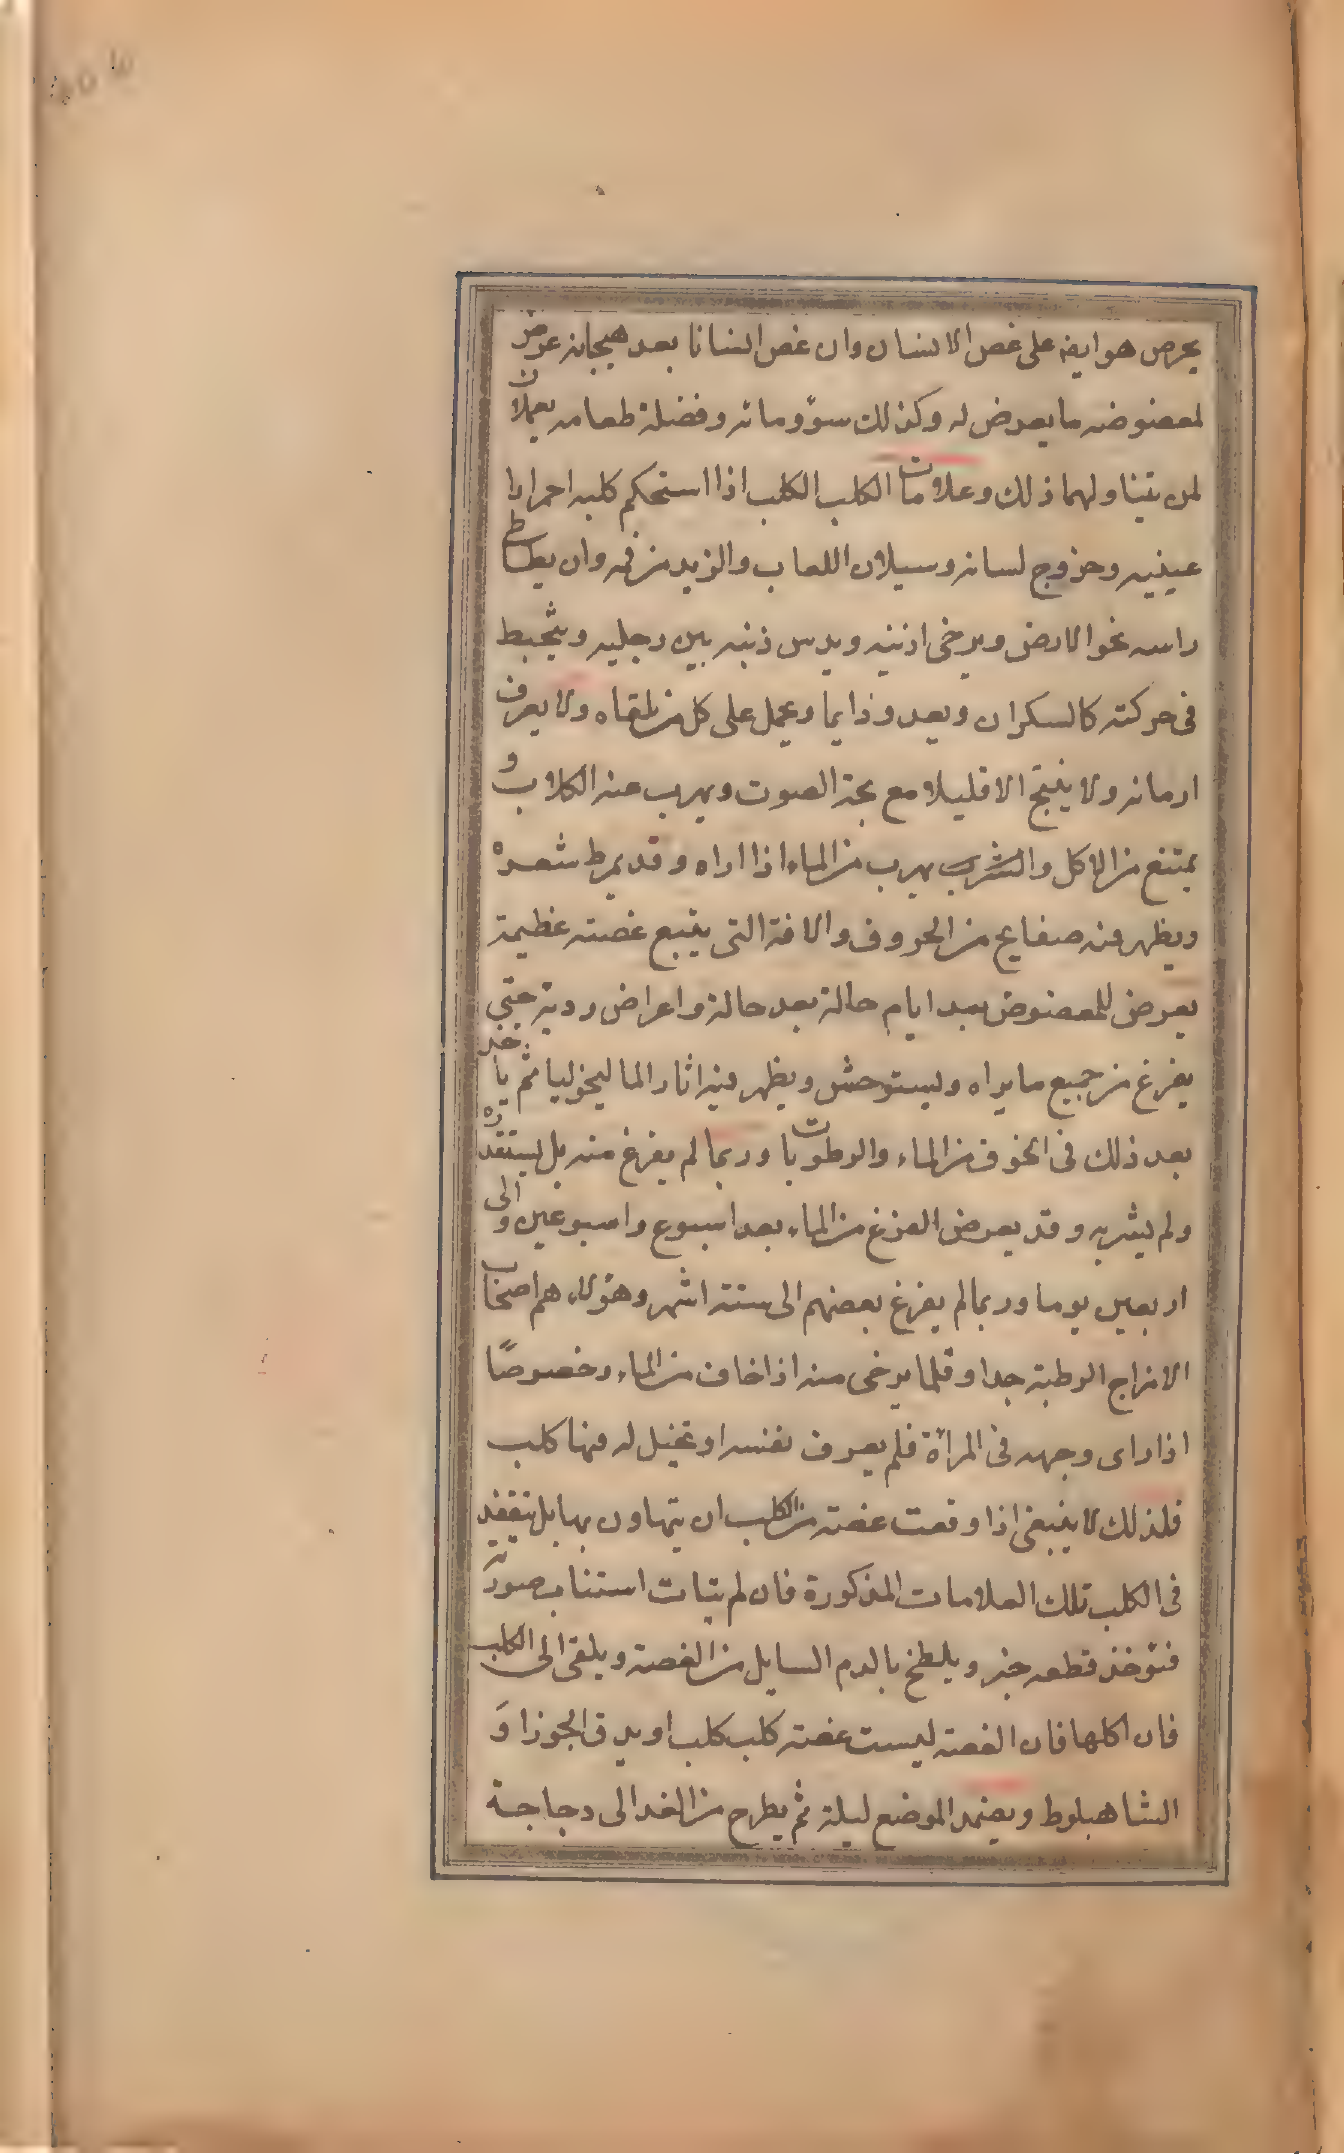 يحرص هو ايضه على غص الانسان وان غص انسانا بعد هيجانه عرض
لمعضوضه ما يعرض له وكذلك سوؤ ومائه وفضلة طعامه يعملان
لمن يتناولهما ذلك وعلامات الكلب الكلب اذا استحكم كلبه احمرارا
عينيه وخروج لسانه وسيلان اللعاب والزبد من فمه وان يطاطى
راسه نحو الارض ويرخى اذنيه ويدس ذنبه بين رجليه ويتخبط
فى حركته كالسكران ويعدو ذايما ويحمل على كل من يلقاه ولا يعرف
اربابه ولا ينبح الا قليلا مع بحة الصوت ويهرب عنه الكلاب و
يمتنع من الاكل والشرب يهرب من الماء اذا اراه وقد يمرط شعره
ويظهر منه صفايح من الحروف والافة التى يتبع غصته عظيمة
يعرض للمعضوض بعد ايام حالة بعد حالة واعراض ردية حتى
يفزغ من جميع ما يراه ويستوحش ويظهر فيه اثار الماليخوليا ثم ياخذ
بعد ذلك فى الخوف من الماء والرطوبات وربما لم يفزغ منه بل يستقذره
ولم يشربه وقد يعرض الفزغ من الماء بعد اسبوع واسبوعين والى
اربعين يوما وربما لم يفزغ بعضهم الى ستة اشهر وهؤلاء هم اصحاب
الامزاج الرطبة جدا وقلما يرخى منه اذا خاف من الماء وخصوصًا
اذا راى وجهه فى المرأة فلم يعرف نفسه او تخيل له فيها كلب
فلذلك لا ينبغى اذا وقعت غصته من الكلب ان يتهاون بها بل يتفقد
فى الكلب تلك العلامات المذكورة فان لم يتات استناب صورته
فتؤخذ قطعه خبز ويلطخ بالدم السايل من الغصة ويلقى الى الكلب
فان اكلها فان الغصة ليست غصة كلب كلب او يدق الجوز او
الشاهبلوط ويضمد الموضع ليلة ثم يطرح من الغد الى دجاجة